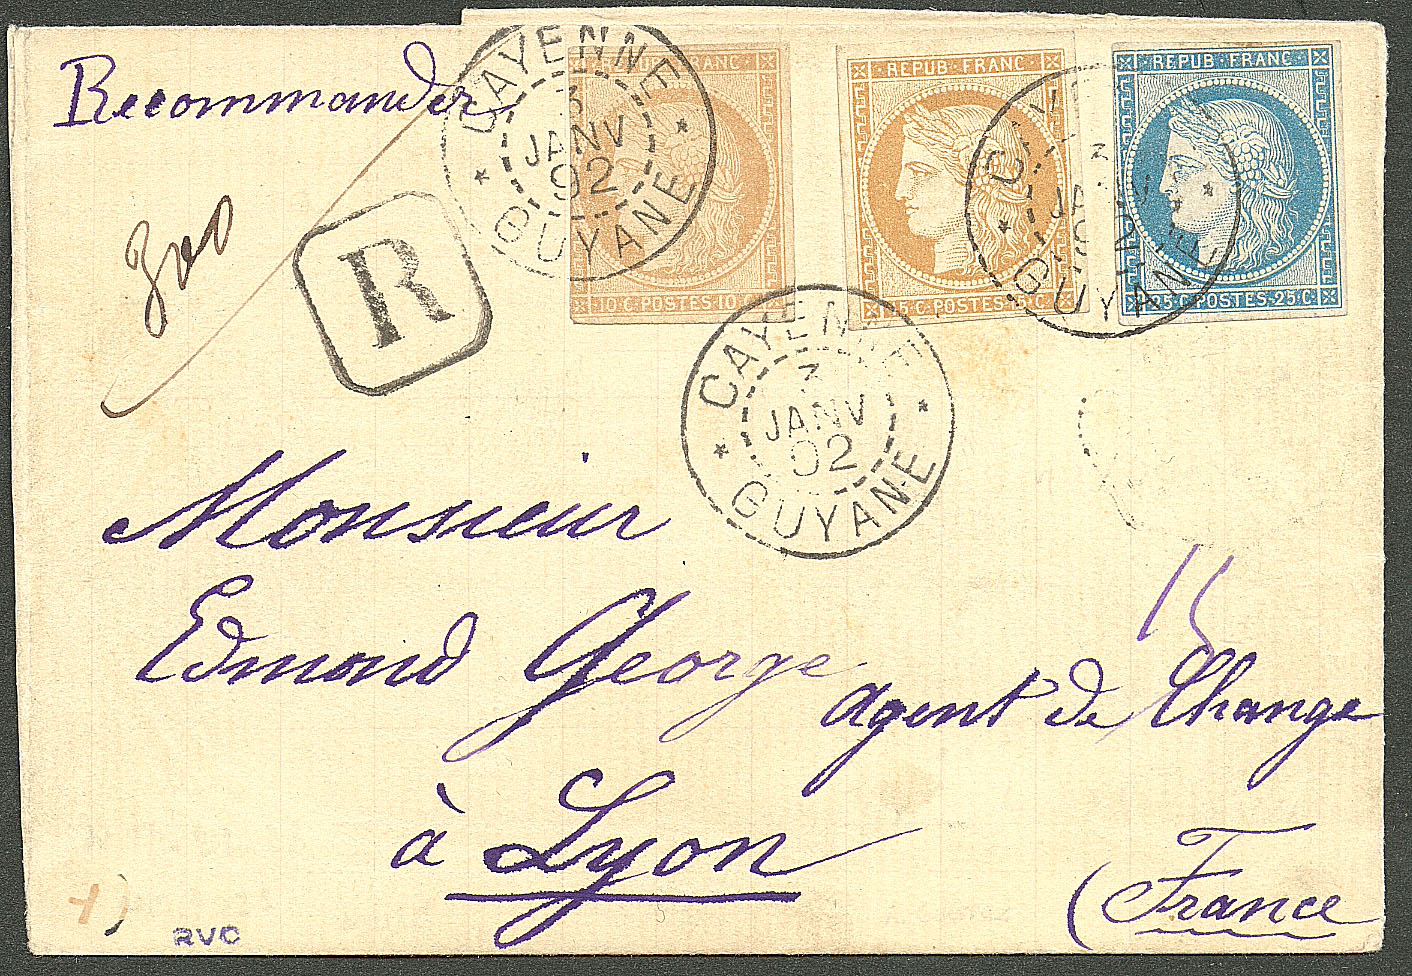 Recommander
CAYENNE
3
JANV
02
GUYANE
REPUB FRANC
10·C·POSTES·10
REPUB·FRANC·
15·C·POSTES·15·C·
REPUB·FRANC·
25·C·POSTES·25·C·
CAYENNE
3
GUYANE
R
CAYENNE
3
JANV
02
GUYANE
Monsieur
Edmond George
agent de Change
à Lyon
(France
RVC